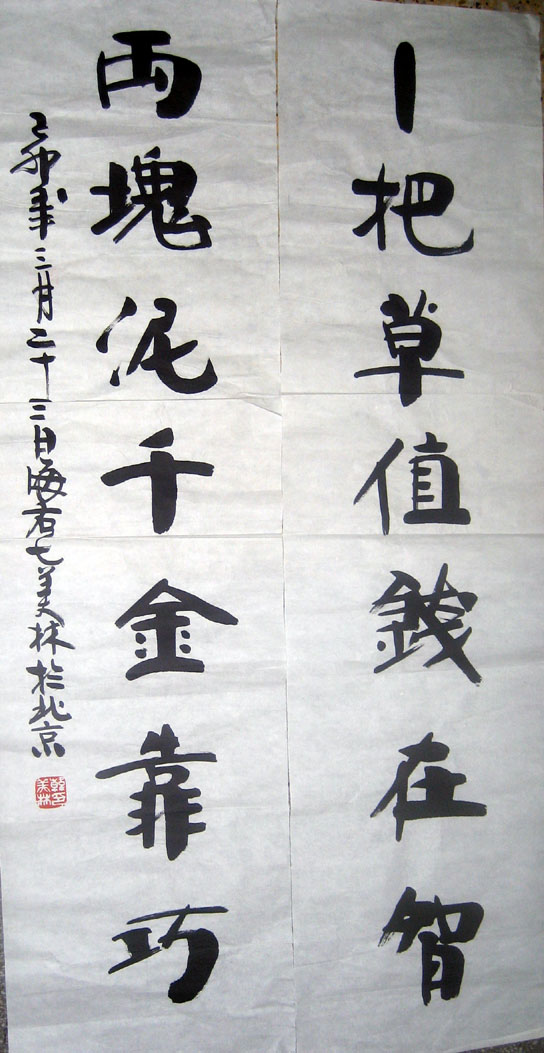 一把草值錢在智
兩塊泥千金靠巧
己卯年三月二十三日海右七美林於北京
韓美林印